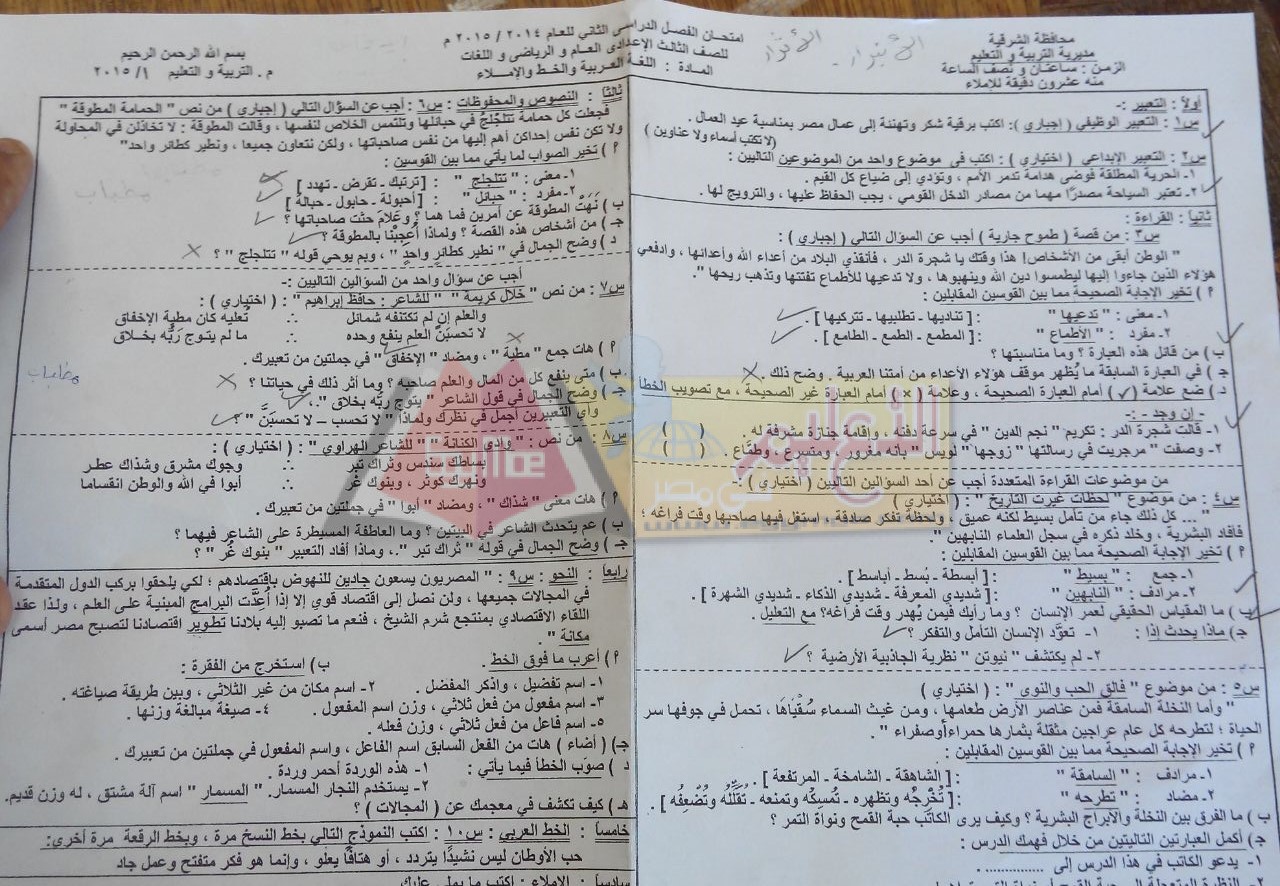 محافظة الشرقية
مديرية التربية و التعليم
الزمن : ساعتان و نصف الساعة
منه عشرون دقيقة للإملاء
امتحان الفصل الدراسى الثاني للعام ٢٠١٤ / ٢٠١٥ م
للصف الثالث الإعدادى العام و الرياضى و اللغات
المادة : اللغة العربية والخط والإملاء
بسم الله الرحمن الرحيم
م . التربية و التعليم ١/ ٢٠١٥
أولاً : التعبير :-
س١ : التعبير الوظيفي ( إجباري ) : اكتب برقية شكر وتهنئة إلى عمال مصر بمناسبة عيد العمال .
(لا تكتب أسماء ولا عناوين )
س٢ : التعبير الإبداعي ( اختياري ) : اكتب في موضوع واحد من الموضوعين التاليين :
١- الحرية المطلقة فوضى هدامة تدمر الأمم ، وتؤدي إلى ضياع كل القيم .
٢- تعتبر السياحة مصدرًا مهما من مصادر الدخل القومي ، يجب الحفاظ عليها ، والترويج لها .
ثانياً : القراءة :
س٣ : من قصة ( طموح جارية ) أجب عن السؤال التالي ( إجباري ) :
" الوطن أبقى من الأشخاص! هذا وقتك يا شجرة الدر ، فأنقذي البلاد من أعداء الله وأعدائها ، وادفعي
هؤلاء الذين جاءوا إليها ليطمسوا دين الله وينهبوها ، ولا تدعيها للأطماع تفتتها وتذهب ريحها ".
٩ ) تخير الإجابة الصحيحة مما بين القوسين المقابلين :
١- معنى : " تدعيها " : [ تناديها - تطلبيها - تتركيها ] .
٢- مفرد : " الأطماع " : [ المطمع - الطمع - الطامع ] .
ب ) من قائل هذه العبارة ؟ وما مناسبتها ؟
ج ) في العبارة السابقة ما يُظهر موقف هؤلاء الأعداء من أمتنا العربية . وضح ذلك .
د ) ضع علامة (✓) أمام العبارة الصحيحة ، وعلامة ( × ) أمام العبارة غير الصحيحة ، مع تصويب الخطأ
- إن وجد - :-
١- قالت شجرة الدر : تكريم " نجم الدين " في سرعة دفنه ، وإقامة جنازة مشرفة له . ( )
٢- وصفت " مرجريت في رسالتها " زوجها" لويس - بأنه مغرور ، ومتسرع ، وطمَّاع . ( )
من موضوعات القراءة المتعددة أجب عن أحد السؤالين التاليين ( اختياري ) :-
س٤ : من موضوع " لحظات غيرت التاريخ " : ( اختياري )
" ... كل ذلك جاء من تأمل بسيط لكنه عميق ، ولحظة تفكر صادقة ، استغل فيها صاحبها وقت فراغه ؛
فأفاد البشرية ، وخلد ذكره في سجل العلماء النابهين ".
٩ ) تخير الإجابة الصحيحة مما بين القوسين المقابلين :
١- جمع : " بسيط " : [ أبسطة - بُسط - أباسط ] .
٢- مرادف : " النابهين " : [ شديدي المعرفة - شديدي الذكاء - شديدي الشهرة ] .
ب ) ما المقياس الحقيقي لعمر الإنسان ؟ وما رأيك فيمن يُهدر وقت فراغه؟ مع التعليل .
ج) ماذا يحدث إذا : ١- تعوَّد الإنسان التأمل والتفكر ؟
٢- لم يكتشف " نيوتن " نظرية الجاذبية الأرضية ؟
س٥ : من موضوع " فالق الحب والنوي " : ( اختياري )
" وأما النخلة السامقة فمن عناصر الأرض طعامها ، ومن غيث السماء سُقْيَاهَا ، تحمل في جوفها سر
الحياة ؛ لتطرحه كل عام عراجين مثقلة بثمارها حمراء أوصفراء " .
٩ ) تخير الإجابة الصحيحة مما بين القوسين المقابلين :
١- مرادف : " السامقة " : [ الشاهقة - الشامخة - المرتفعة ] .
٢- مضاد : " تطرحه " : [ تُخْرِجُه وتظهره - تُمسكه وتمنعه - تُقَلِّلُه وتُضْعِفُه ] .
ب ) ما الفرق بين النخلة والأبراج البشرية ؟ وكيف يرى الكاتب حبة القمح ونواة التمر ؟
ج) أكمل العبارتين التاليتين من خلال فهمك الدرس :
١- يدعو الكاتب في هذا الدرس إلى ..............
ثالثاً : النصوص والمحفوظات : س٦ : أجب عن السؤال التالي ( إجباري ) من نص " الحمامة المطوقة "
فجعلت كل حمامة تتلجلج في حبائلها وتلتمس الخلاص لنفسها ، وقالت المطوقة : لا تخاذلن في المحاولة
ولا تكن نفس إحداكن أهم إليها من نفس صاحباتها ، ولكن نتعاون جميعا ، ونطير كطائر واحد"
٩ ) تخير الصواب لما يأتي مما بين القوسين :
١- معنى : " تتلجلج " : [ ترتبك - تقرض - تهدد ]
٢- مفرد : " حبائل " : [ أحبولة - حابول - حبالة ]
ب ) نَهَتْ المطوقة عن أمرين فما هما ؟ وعَلامَ حثت صاحباتها ؟
جـ ) من أشخاص هذه القصة ؟ ولماذا أعجبْنَا بالمطوقة ؟
د ) وضح الجمال في " نطير كطائر واحدٍ " ، وبم يوحي قوله " تتلجلج " ؟
أجب عن سؤال واحد من السؤالين التاليين :-
س٧ : من نص " خلال كريمة " " للشاعر : حافظ إبراهيم " : ( اختياري ) :
والعلم إن لم تكتنفه شمائل ∴ تُعليه كان مطية الإخفاق
لا تحسبَنَّ العلم ينفع وحده ∴ ما لم يتوج رَبُّه بخلاق
٩ ) هات جمع " مطية " ، ومضاد " الإخفاق " في جملتين من تعبيرك .
ب ) متى ينفع كل من المال والعلم صاحبه ؟ وما أثر ذلك في حياتنا ؟
جـ ) وضح الجمال في قول الشاعر " يتوج ربُّه بخلاق ".
وأي التعبيرين أجمل في نظرك ولماذا " لا تحسب – لا تحسَبَنَّ " ؟
س٨ : من نص : " وادي الكنانة " " للشاعر الهراوي " : ( اختياري ) :
بساطك سندس وثراك تبر ∴ وجوك مشرق وشذاك عطر
ونهرك كوثر ، وبنوك غُر ∴ أبوا في الله والوطن انقساما
٩ ) هات معنى " شذاك " ، ومضاد " أبوا " في جملتين من تعبيرك .
ب ) عم يتحدث الشاعر في البيتين ؟ وما العاطفة المسيطرة على الشاعر فيهما ؟
جـ ) وضح الجمال في قوله " ثراك تبر ". وماذا أفاد التعبير " بنوك غُر " ؟
رابعاً : النحو : س٩ : " المصريون يسعون جادين للنهوض بإقتصادهم ؛ لكي يلحقوا بركب الدول المتقدمة
في المجالات جميعها ، ولن نصل إلى اقتصاد قوي إلا إذا أُعدَّت البرامج المبنية على العلم ، ولذا عقد
اللقاء الاقتصادي بمنتجع شرم الشيخ ، فنعم ما تصبو إليه بلادنا تطوير اقتصادنا لتصبح مصر أسمى
مكانة " .
٩ ) أعرب ما فوق الخط . ب ) استخرج من الفقرة :
١- اسم تفضيل ، واذكر المفضل . ٢- اسم مكان من غير الثلاثي ، وبين طريقة صياغته .
٣- اسم مفعول من فعل ثلاثي ، وزن اسم المفعول . ٤- صيغة مبالغة وزنها .
٥- اسم فاعل من فعل ثلاثي ، وزن فعله .
جـ) ( أضاء ) هات من الفعل السابق اسم الفاعل ، واسم المفعول في جملتين من تعبيرك .
د ) صوّب الخطأ فيما يأتي : ١- هذه الوردة أحمر وردة .
٢- يستخدم النجار المسمار. " المسمار " اسم آلة مشتق ، له وزن قديم.
هـ) كيف تكشف في معجمك عن ( المجالات ) ؟
خامساً : الخط العربي : س١٠ : اكتب النموذج التالي بخط النسخ مرة ، وبخط الرقعة مرة أخري:
حب الأوطان ليس نشيدًا يتردد ، أو هتافًا يعلو ، وإنما هو فكر متفتح وعمل جاد
سادساً : الإملاء : اكتب ما يملى عليك
التعليم
في مصر